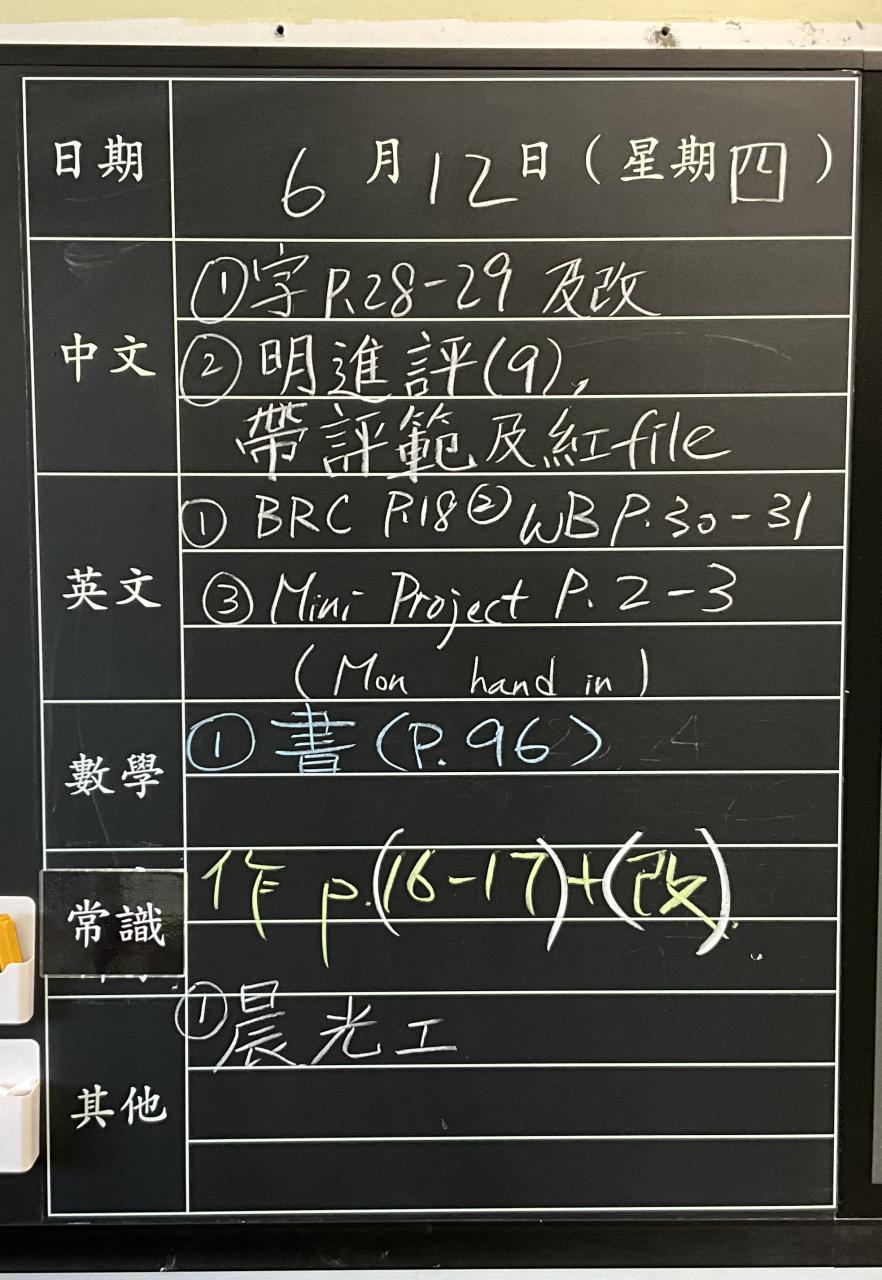 日期 6月12日(星期四)
中文
①字P.28-29 及改
②明進評(9),
帶評範及紅file
英文
①BRC P.18 ②WB P.30-31
③Mini Project P.2-3
(Mon hand in)
數學
①書(P.96)
常識
作 p.(16-17)+(改).
其他
①晨光工